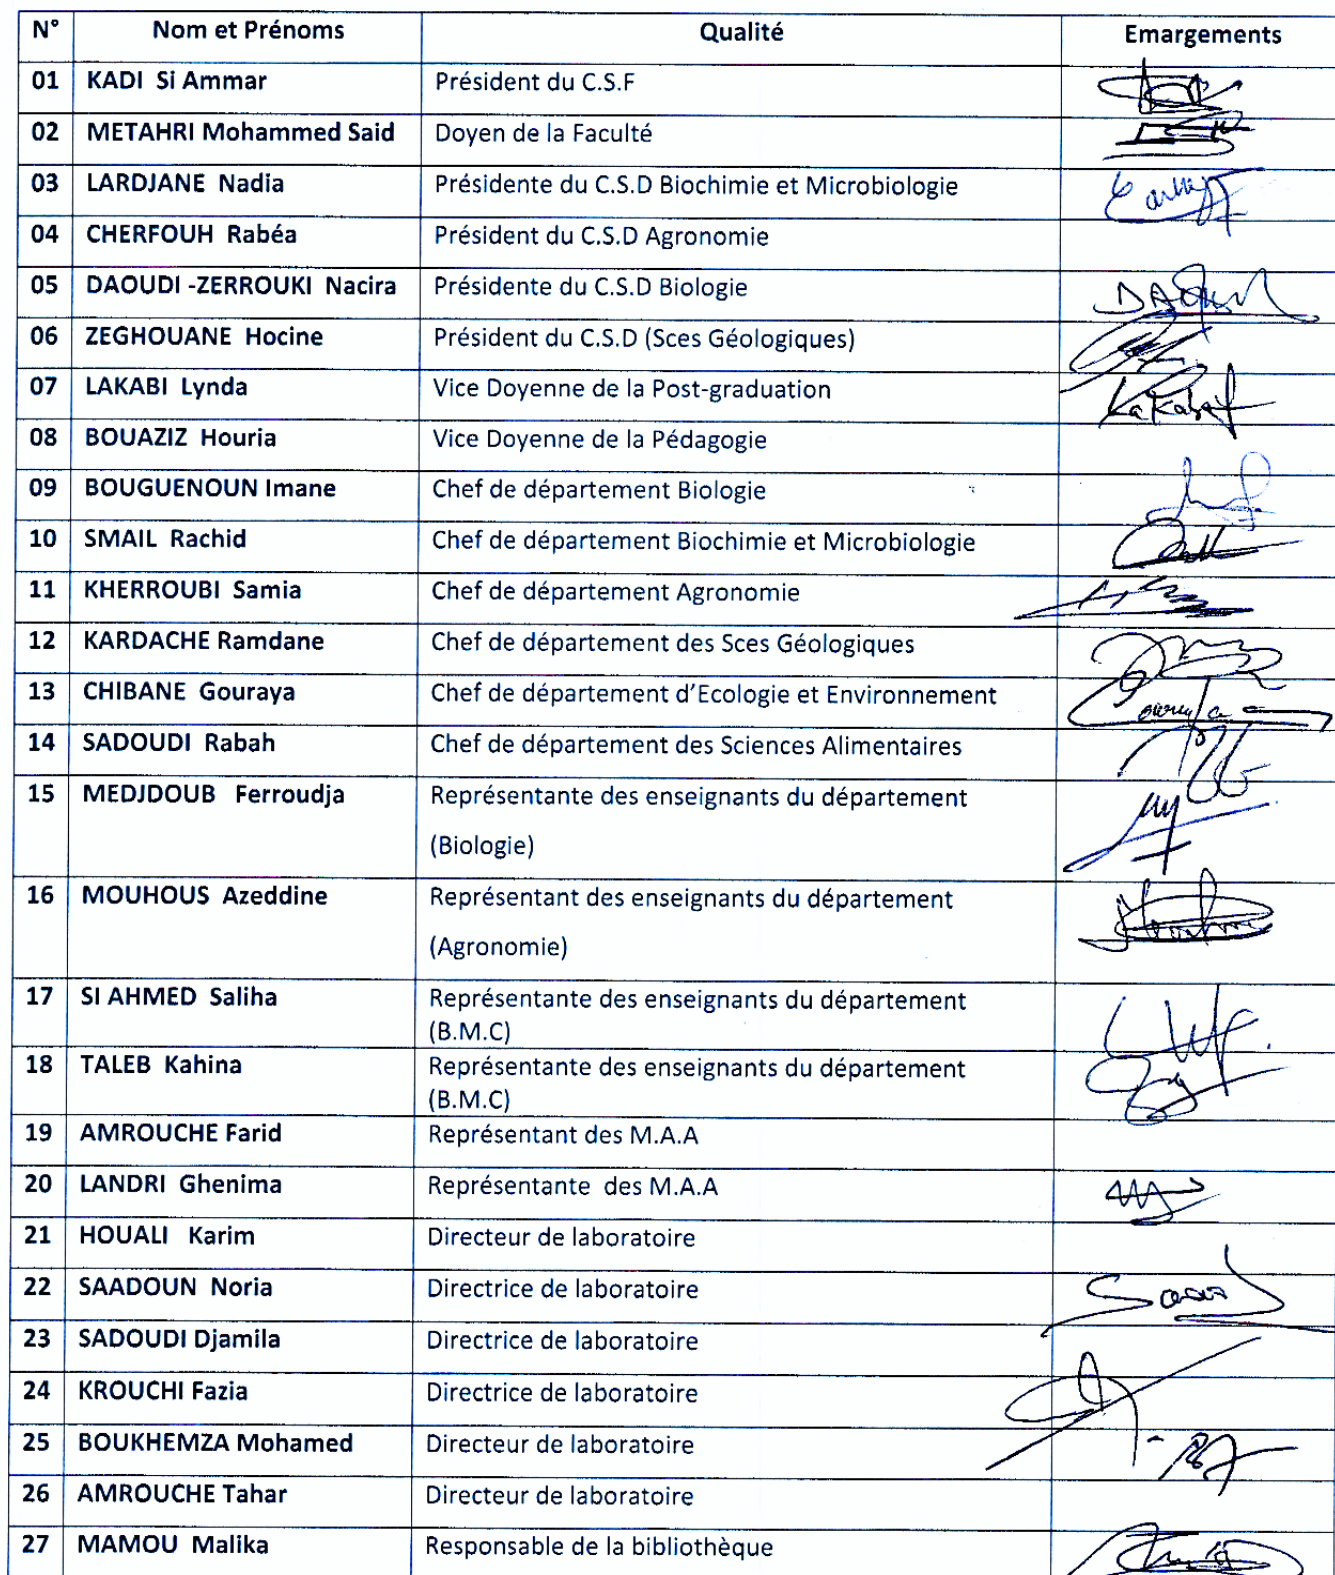 N° Nom et Prénoms Qualité Emargements
01 KADI Si Ammar Président du C.S.F
02 METAHRI Mohammed Said Doyen de la Faculté
03 LARDJANE Nadia Présidente du C.S.D Biochimie et Microbiologie
04 CHERFOUH Rabéa Président du C.S.D Agronomie
05 DAOUDI -ZERROUKI Nacira Présidente du C.S.D Biologie
06 ZEGHOUANE Hocine Président du C.S.D (Sces Géologiques)
07 LAKABI Lynda Vice Doyenne de la Post-graduation
08 BOUAZIZ Houria Vice Doyenne de la Pédagogie
09 BOUGUENOUN Imane Chef de département Biologie
10 SMAIL Rachid Chef de département Biochimie et Microbiologie
11 KHERROUBI Samia Chef de département Agronomie
12 KARDACHE Ramdane Chef de département des Sces Géologiques
13 CHIBANE Gouraya Chef de département d'Ecologie et Environnement
14 SADOUDI Rabah Chef de département des Sciences Alimentaires
15 MEDJDOUB Ferroudja Représentante des enseignants du département
(Biologie)
16 MOUHOUS Azeddine Représentant des enseignants du département
(Agronomie)
17 SI AHMED Saliha Représentante des enseignants du département
(B.M.C)
18 TALEB Kahina Représentante des enseignants du département
(B.M.C)
19 AMROUCHE Farid Représentant des M.A.A
20 LANDRI Ghenima Représentante des M.A.A
21 HOUALI Karim Directeur de laboratoire
22 SAADOUN Noria Directrice de laboratoire
23 SADOUDI Djamila Directrice de laboratoire
24 KROUCHI Fazia Directrice de laboratoire
25 BOUKHEMZA Mohamed Directeur de laboratoire
26 AMROUCHE Tahar Directeur de laboratoire
27 MAMOU Malika Responsable de la bibliothèque